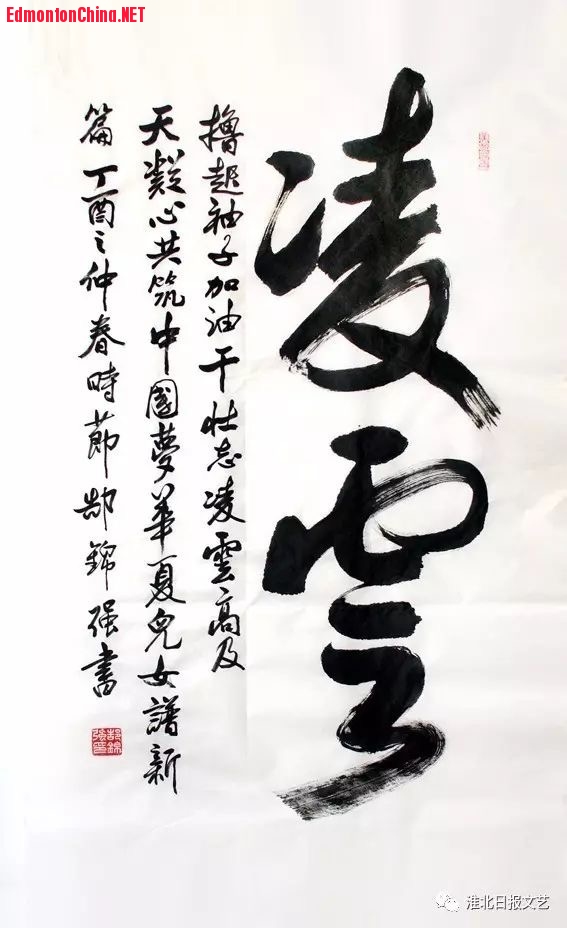 EdmontonChina.NET
凌雲
撸起袖子加油干壮志凌雲高及
天凝心共筑中國夢華夏兒女譜新
篇丁酉之仲春時節郜錦强書
郜錦强印
淮北日报文艺